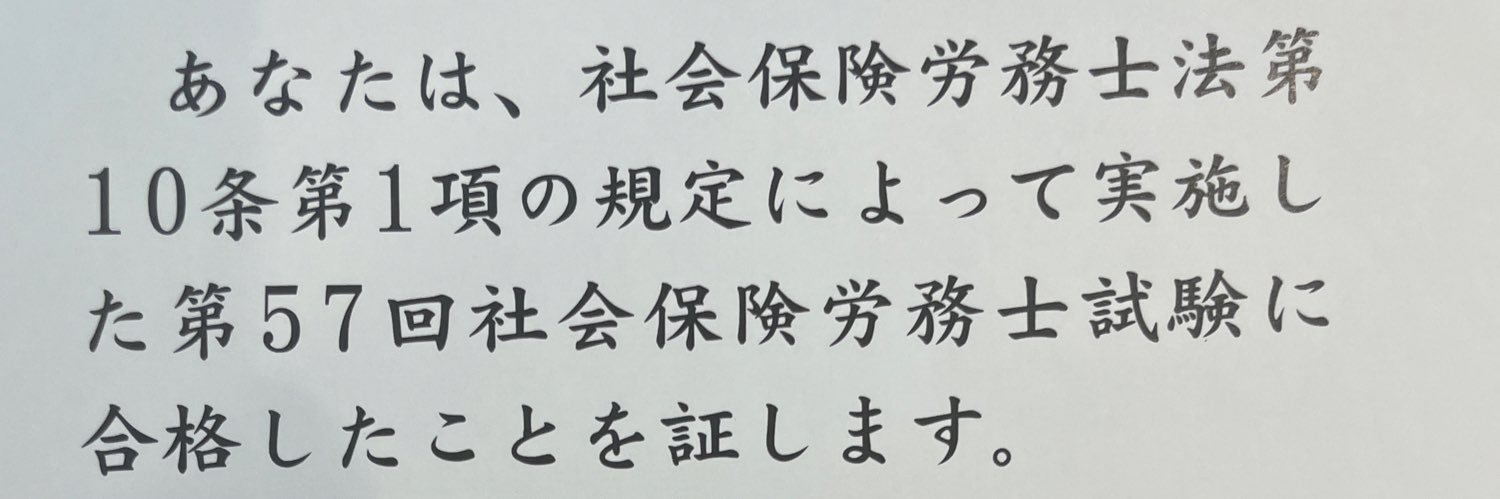 あなたは、社会保険労務士法第
10条第1項の規定によって実施し
た第57回社会保険労務士試験に
合格したことを証します。